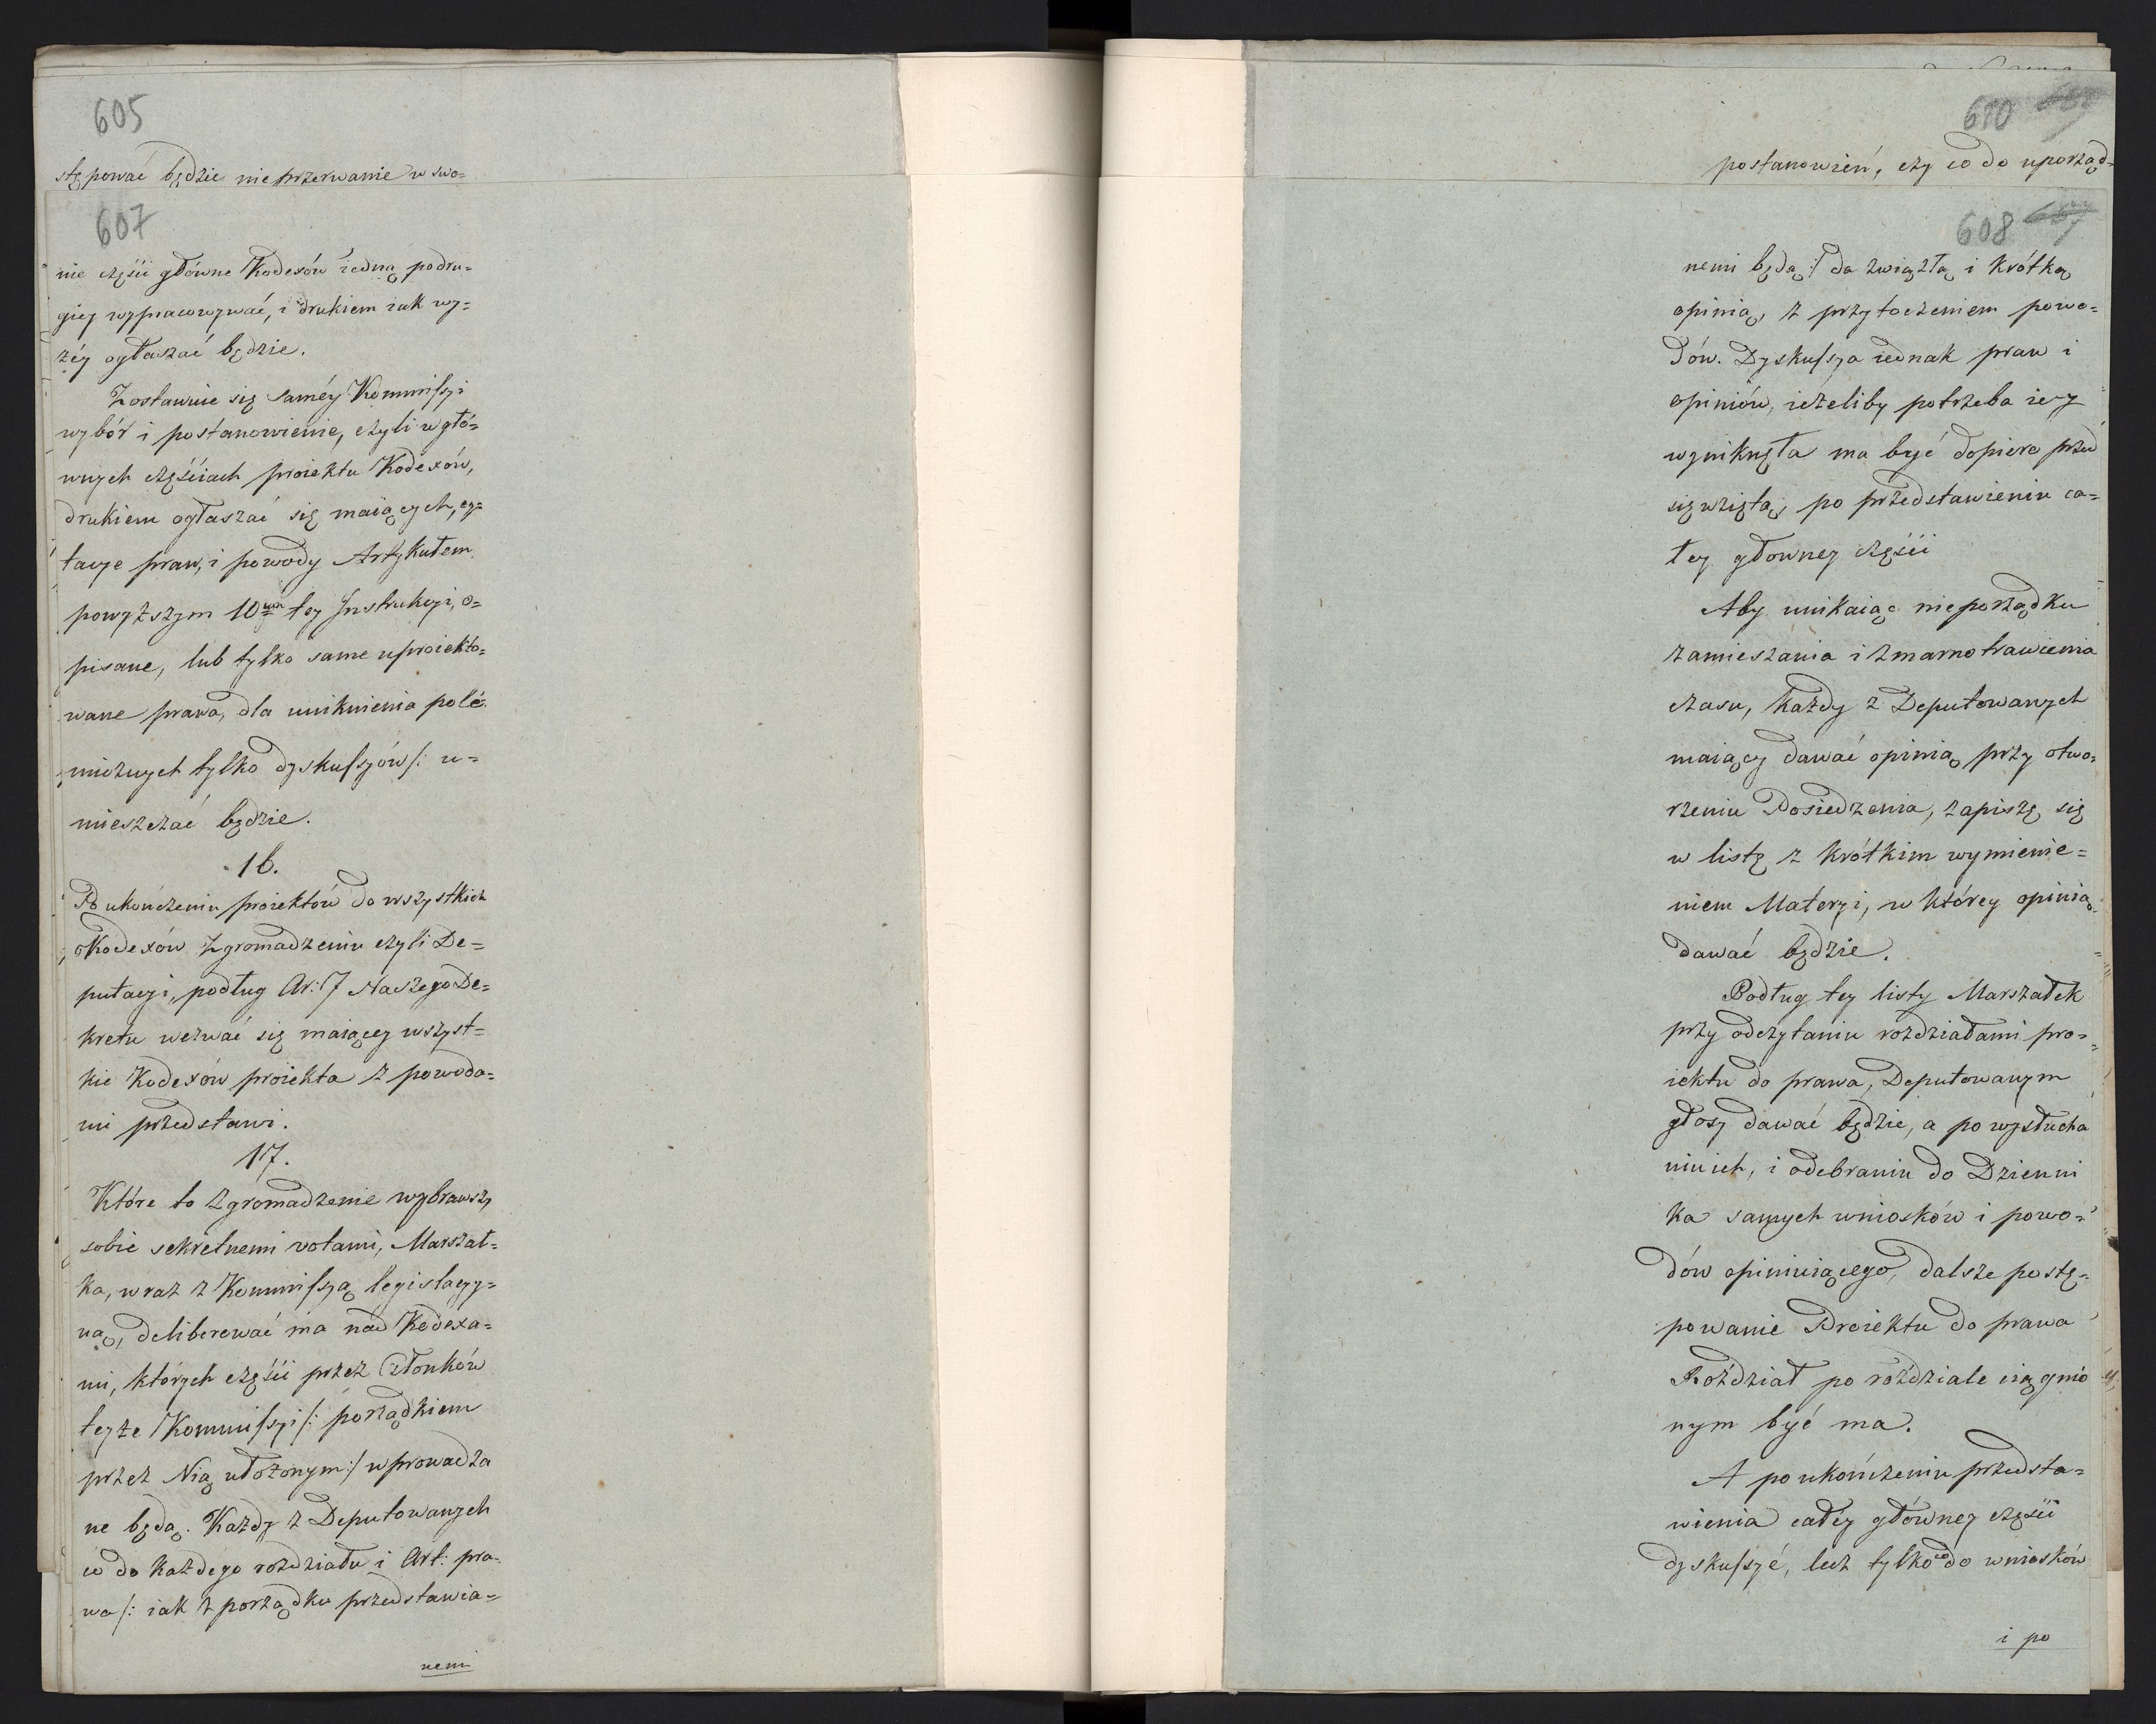 605
stępować będzie nieprzerwanie w swo=
607
nie części główne Kodexów iedną podru=
giey wypracowywać, i drukiem iak wy=
żéy ogłaszać będzie.
Zostawuie się saméy Kommissyi
wybór i postanowienie, czyli w głó=
wnych częściach proiektu Kodexów,
drukiem ogłaszać się maiących, cy=
tacye praw, i powody Artykułem
powyższym 10ym tey Instrukcyi, o=
pisane, lub tylko same uproiekto=
wane prawa, dla uniknienia polé
micznych tylko dyskussyów /: u=
mieszczać będzie.
16.
Po ukończeniu proiektów do wszystkich
Kodexów Zgromadzeniu czyli De=
putacyi, podług Ar: 7 Naszego De=
kretu wezwać się maiącey wszyst=
kie Kodexów proiekta z powoda=
mi przedstawi.
17.
Które to Zgromadzenie wybrawszy
sobie sekretnemi votami, Marszał=
ka, wraz z Kommissyą legislacyy=
ną, deliberować ma nad Kodexa=
mi, których części przez Członków
teyże Kommissyi /: porządkiem
przez Nią ułożonym :/ wprowadza
ne będą. Każdy z Deputowanych
co do każdego rozdziału i Art: pra=
wa /: iak z porządku przedstawia=
nemi
610
postanowień, czy co do uporząd=
608
nemi będą :/ da zwięzłą i krótką
opinią, z przytoczeniem powo=
dów. Dyskussya iednak praw i
opiniów, ieżeliby potrzeba iey
wyniknęła ma być dopiero przed
sięwziętą, po przedstawieniu ca=
łey głowney części
Aby unikaiąc nieporządku
zamieszania i zmarnotrawienia
czasu, każdy z Deputowanych
maiący dawać opinią przy otwo=
rzeniu Posiedzenia, zapiszę się
w listę z krótkim wymienie=
niem Materyi, w którey opinią
dawać będzie.
Podług tey listy Marszałek
przy odczytaniu rozdziałami pro=
iektu do prawa, Deputowanym
głosy dawać będzie, a po wysłucha
niu ich, i odebraniu do Dzienni
ka samych wniosków i powo=
dów opiniuiącego, dalsze postę=
powanie Proiektu do prawa
Roździał po roździale ciągnio
nym być ma.
A po ukończeniu przedsta=
wienia całéy główney części
dyskussyé, lecz tylko co do wniosków
i po